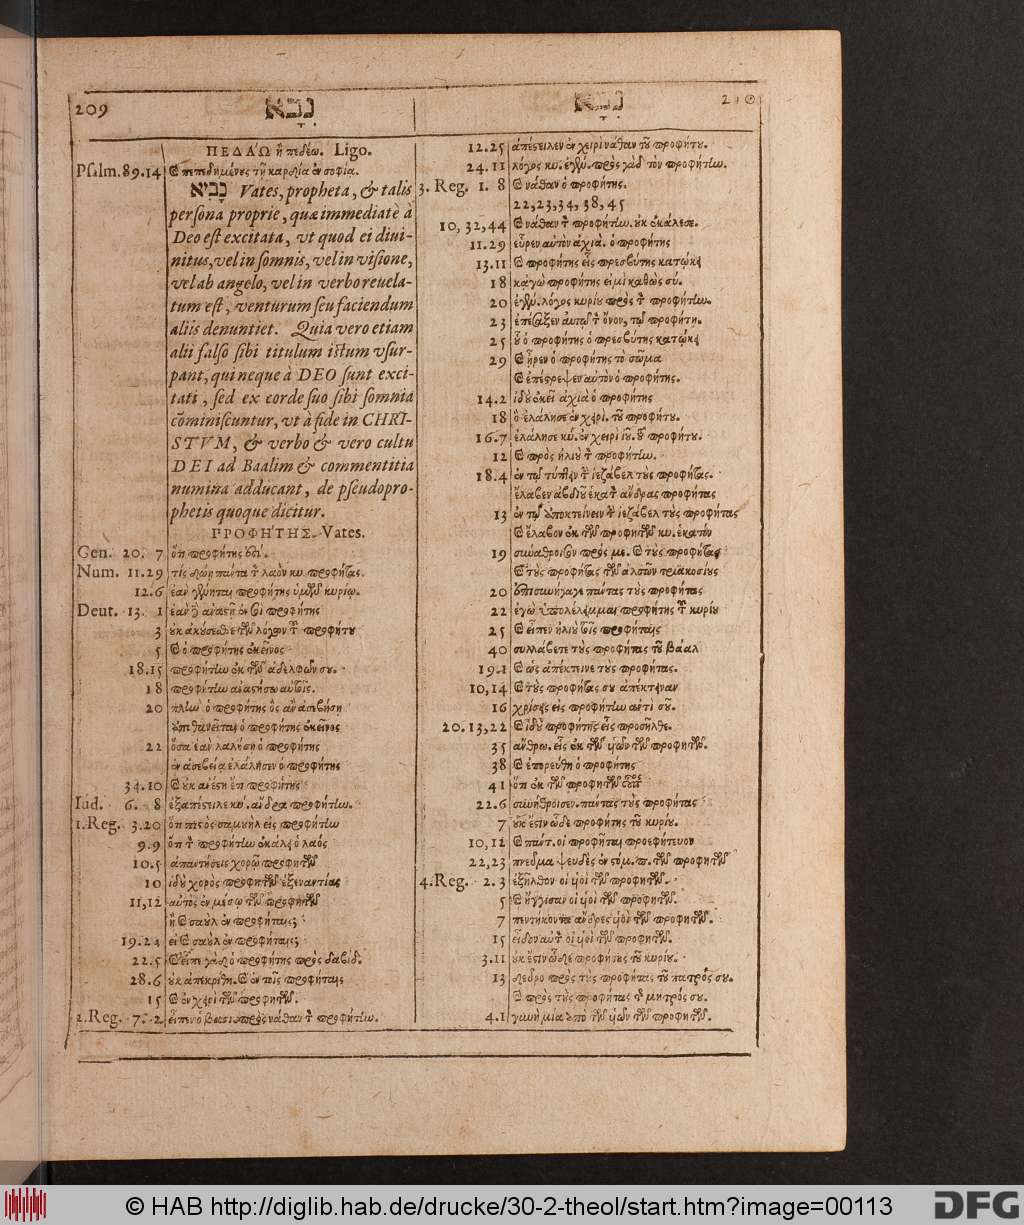 209
נָבָא
ΠΕΔΑΏ ἢ πεδέω. Ligo.
Psalm. 89.14 πεπεδημένες τῇ καρδίᾳ ἐν σοφίᾳ.
נָבִיא Vates, propheta, & talis
persona proprie, quæ immediatè à
Deo est excitata, vt quod ei diui-
nitus, vel in somnis, vel in visione,
vel ab angelo, vel in verbo reuela-
tum est, venturum seu faciendum
aliis denuntiet. Quia vero etiam
alii falso sibi titulum istum vsur-
pant, qui neque à DEO sunt exci-
tati, sed ex corde suo sibi somnia
cōminiscuntur, vt à fide in CHRI-
STVM, & verbo & vero cultu
DEI ad Baalim & commentitia
numina adducant, de pseudopro-
phetis quoque dicitur.
ΠΡΟΦΉΤΗΣ. Vates.
Gen. 20. 7 ὅτι προφήτης ἐστί.
Num. 11.29 τίς δώῃ πάντα τὸν λαὸν κυ. προφήτας.
12.6 ἐὰν γένηται προφήτης ὑμῶν κυρίῳ.
Deut. 13. 1 ἐὰν δὲ ἀναστῇ ἐν σοὶ προφήτης
3 οὐκ ἀκούσεσθε τῶν λόγων τοῦ προφήτου
5 καὶ ὁ προφήτης ἐκεῖνος
18.15 προφήτην ἐκ τῶν ἀδελφῶν σου.
18 προφήτην ἀναστήσω αὐτοῖς.
20 πλὴν ὁ προφήτης ὃς ἂν ἀσεβήσῃ
ἀποθανεῖται ὁ προφήτης ἐκεῖνος
22 ὅσα ἐὰν λαλήσῃ ὁ προφήτης
ἐν ἀσεβείᾳ ἐλάλησεν ὁ προφήτης
34.10 καὶ οὐκ ἀνέστη ἔτι προφήτης
Iud. 6. 8 ἐξαπέστειλε κυ. ἄνδρα προφήτην.
1.Reg. 3.20 ὅτι πιστὸς σαμουὴλ εἰς προφήτην
9.9 ὅτι τὸν προφήτην ἐκάλει ὁ λαός
10.5 ἀπαντήσεις χορῷ προφητῶν
10 ἰδοὺ χορὸς προφητῶν ἐξεναντίας
11,12 αὐτὸς ἐν μέσῳ τῶν προφητῶν
ἢ καὶ σαοὺλ ἐν προφήταις;
19.24 εἰ καὶ σαοὺλ ἐν προφήταις;
22.5 καὶ εἶπε γὰδ ὁ προφήτης πρὸς δαβίδ.
28.6 οὐκ ἀπεκρίθη. καὶ ἐν τοῖς προφήταις
15 καὶ ἐν χειρὶ τῶν προφητῶν.
2.Reg. 7. 2 εἶπεν ὁ βασι. πρὸς νάθαν τὸν προφήτην.
נָבָא
210
12.25 ἀπέστειλεν ἐν χειρὶ νάθαν τοῦ προφήτου.
24.11 λόγος κυ. ἐγέν. πρὸς γὰδ τὸν προφήτην.
3. Reg. 1. 8 καὶ νάθαν ὁ προφήτης.
22,23,34, 38, 45
10, 32,44 καὶ νάθαν τὸν προφήτην. οὐκ ἐκάλεσε.
11.29 εὗρεν αὐτὸν ἀχιὰ. ὁ προφήτης
13.11 καὶ προφήτης εἷς πρεσβύτης κατῴκει
18 κἀγὼ προφήτης εἰμὶ καθὼς σύ.
20 ἐγέν. λόγος κυρίου πρὸς τὸν προφήτην.
23 ἐπέσαξεν αὐτῷ τὸν ὄνον, τῷ προφήτῃ.
25 οὗ ὁ προφήτης ὁ πρεσβύτης κατῴκει
29 καὶ ᾖρεν ὁ προφήτης τὸ σῶμα
καὶ ἐπέστρεψεν αὐτὸν ὁ προφήτης.
14.2 ἰδοὺ ἐκεῖ ἀχιὰ ὁ προφήτης
18 ὃ ἐλάλησε ἐν χειρὶ. τοῦ προφήτου.
16.7 ἐλάλησε κυ. ἐν χειρὶ ἰοῦ. τοῦ προφήτου.
12 καὶ πρὸς ἠλιοῦ τὸν προφήτην.
18.4 ἐν τῷ τύπτειν τὴν ἰεζάβελ τοὺς προφήτας.
ἔλαβεν ἀβδιοῦ ἑκατὸν ἄνδρας προφήτας
13 ἐν τῷ ἀποκτείνειν τὴν ἰεζάβελ τοὺς προφήτας
καὶ ἔλαβον ἐκ τῶν προφητῶν κυ. ἑκατὸν
19 συνάθροισον πρός με. καὶ τοὺς προφήτας
καὶ τοὺς προφήτας τῶν ἀλσῶν τριακοσίους
20 ἐπισυνήγαγε πάντας τοὺς προφήτας
22 ἐγὼ ὑπολέλειμμαι προφήτης τοῦ κυρίου
25 καὶ εἶπεν ἠλιοῦ τοῖς προφήταις
40 συλλάβετε τοὺς προφήτας τοῦ βάαλ
19.1 καὶ ὡς ἀπέκτεινε τοὺς προφήτας.
10,14 καὶ τοὺς προφήτας σου ἀπέκτειναν
16 χρίσεις εἰς προφήτην ἀντὶ σοῦ.
20. 13,22 καὶ ἰδοὺ προφήτης εἷς προσῆλθε.
35 ἄνθρω. εἷς ἐκ τῶν υἱῶν τῶν προφητῶν.
38 καὶ ἐπορεύθη ὁ προφήτης
41 ὅτι ἐκ τῶν προφητῶν οὗτος
22.6 συνήθροισεν. πάντας τοὺς προφήτας
7 οὐκ ἔστιν ὧδε προφήτης τοῦ κυρίου.
10,12 καὶ πάντ. οἱ προφῆται προεφήτευον
22,23 πνεῦμα ψευδὲς ἐν στόμ. π. τῶν προφητῶν
4. Reg. 2. 3 ἐξῆλθον οἱ υἱοὶ τῶν προφητῶν.
5 καὶ ἤγγισαν οἱ υἱοὶ τῶν προφητῶν.
7 πεντήκοντα ἄνδρες υἱοὶ τῶν προφητῶν.
15 εἶδον αὐτὸν οἱ υἱοὶ τῶν προφητῶν.
3.11 οὐκ ἔστιν ὧδε προφήτης τοῦ κυρίου.
13 δεῦρο πρὸς τοὺς προφήτας τοῦ πατρός σου.
καὶ πρὸς τοὺς προφήτας τῆς μητρός σου.
4.1 γυνὴ μία ἀπὸ τῶν υἱῶν τῶν προφητῶν.
© HAB http://diglib.hab.de/drucke/30-2-theol/start.htm?image=00113
DFG